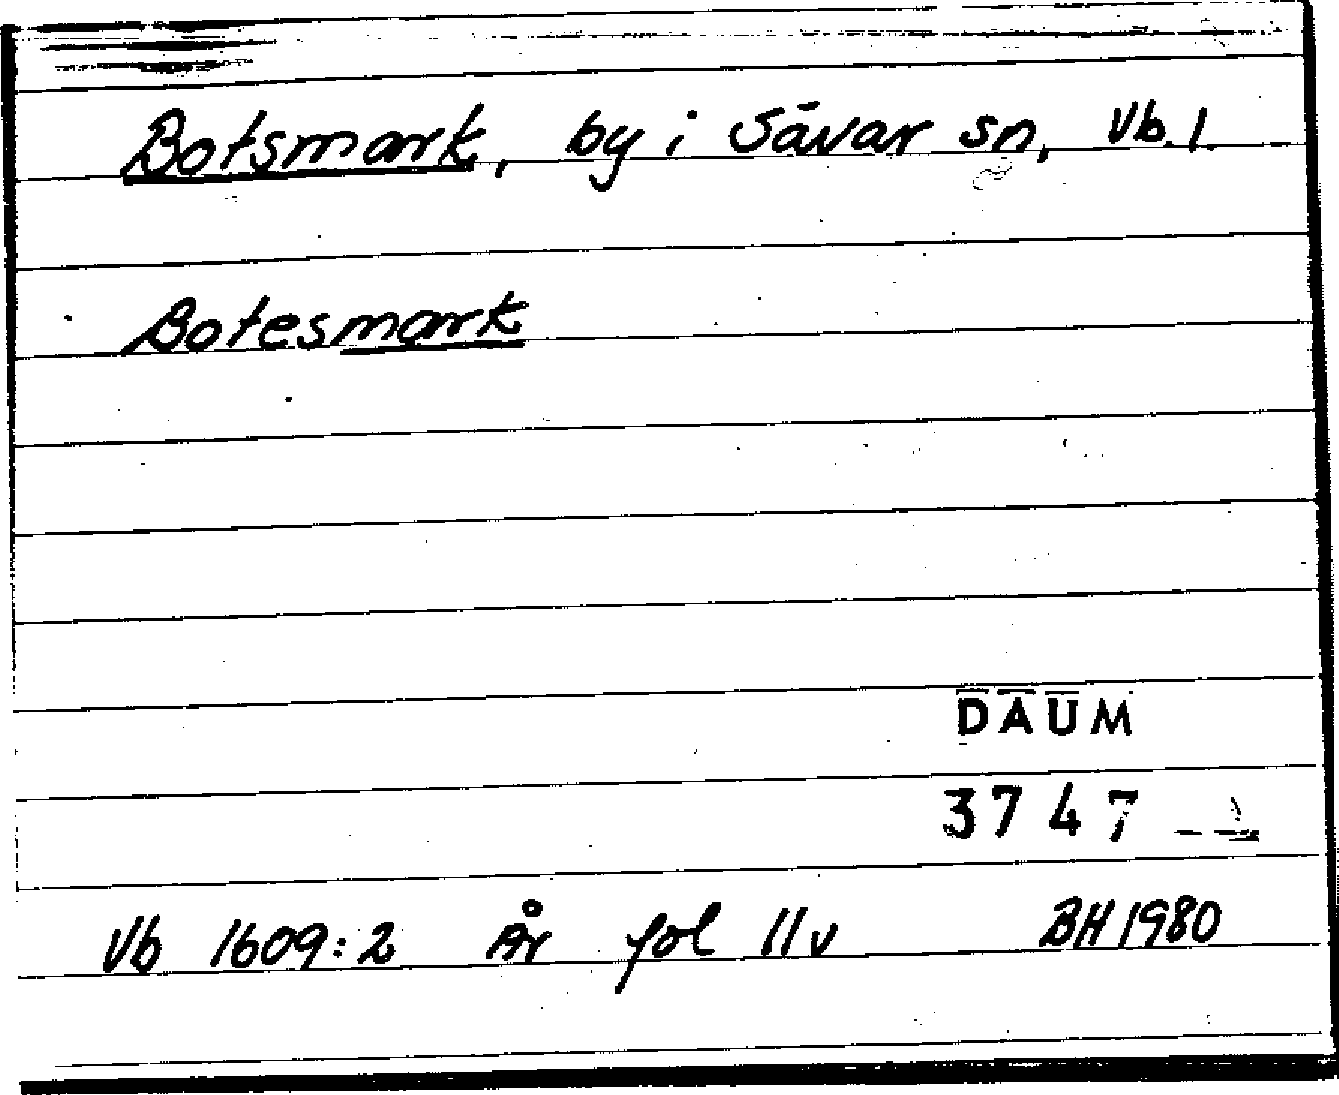 Botsmark, by i Sävar sn, Vb. l.
Botesmark
DAUM
3747
Vb 1609:2 År fol 11v BH 1980